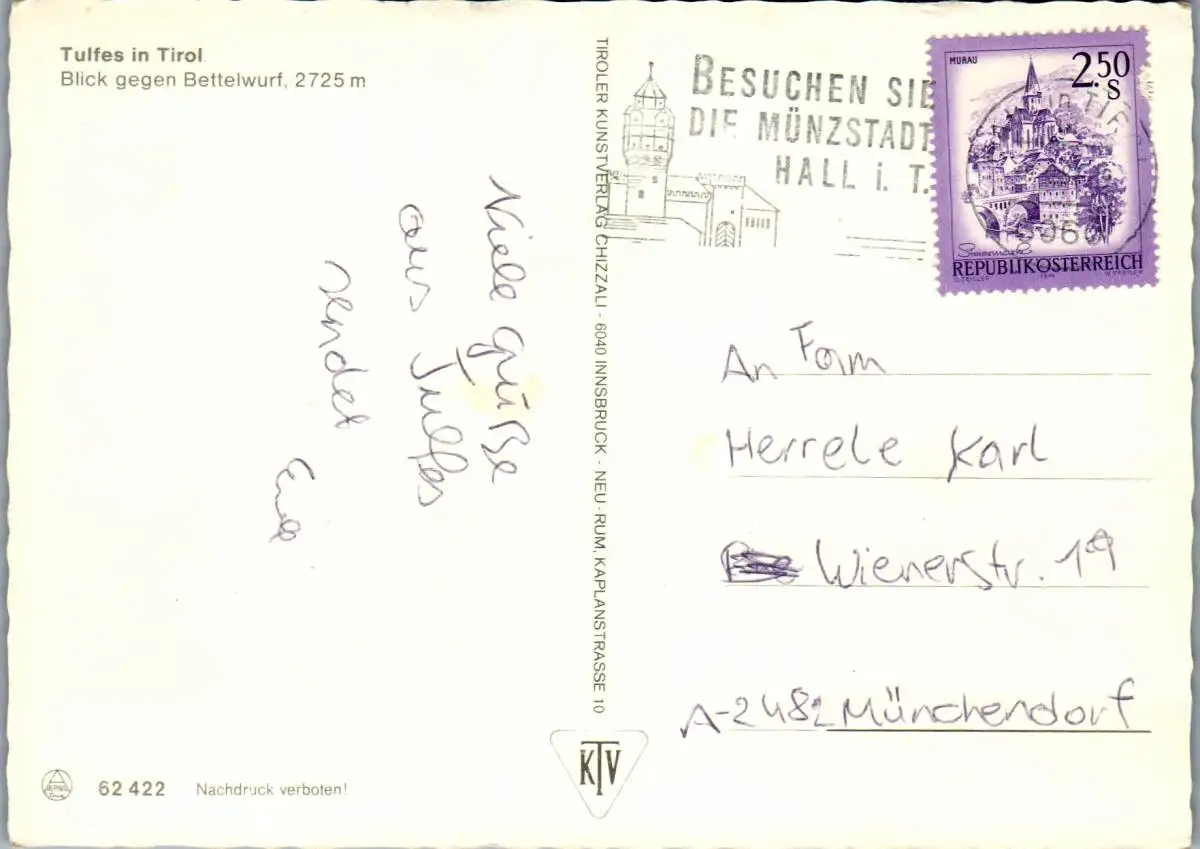 Tulfes in Tirol
Blick gegen Bettelwurf, 2725 m
Viele Grüße
aus Tulfes
sendet
TIROLER KUNSTVERLAG CHIZZALI - 6040 INNSBRUCK - NEU - RUM, KAPLANSTRASSE 10
BESUCHEN SIE
DIE MÜNZSTADT
HALL i. T.
MURAU
2.50
S
Steiermark
REPUBLIK ÖSTERREICH
An Fam
Herrele Karl
Wienerstr. 19
A-2482 Münchendorf
KTV
62 422 Nachdruck verboten!